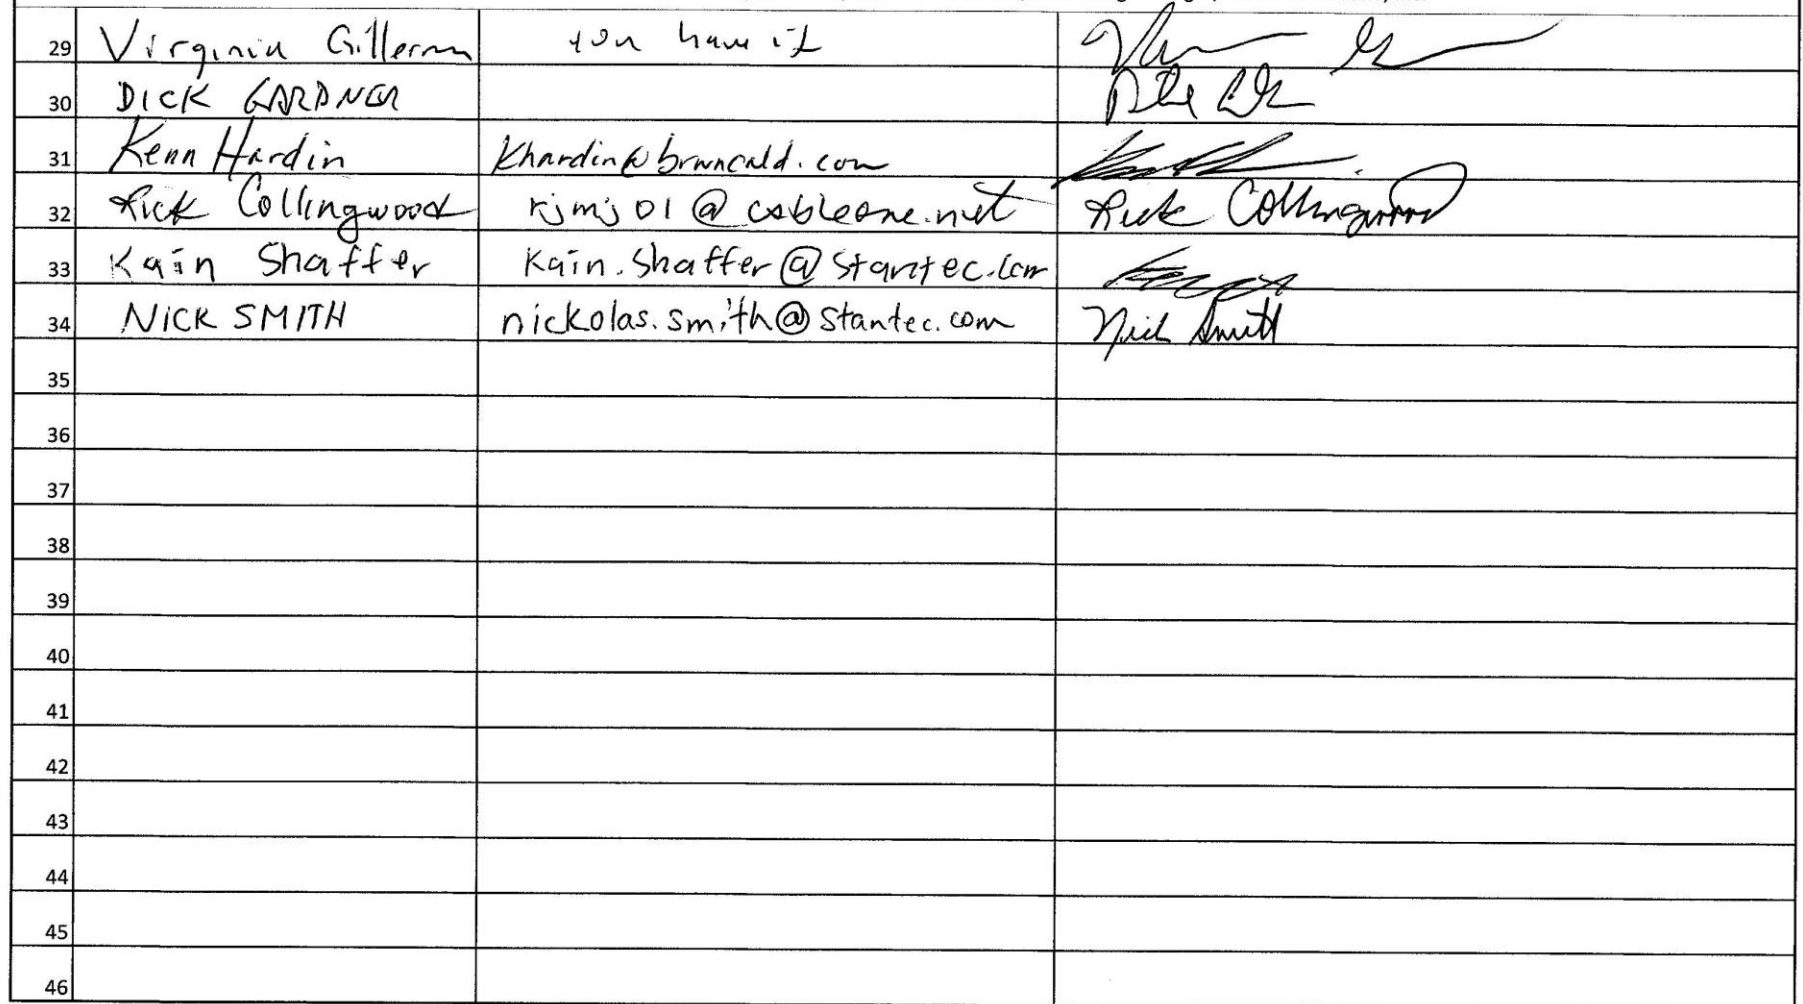 29 Virginia Gillerman you have it
30 DICK GARDNER
31 Kenn Hardin Khardin@brwncald.com
32 Rick Collingwood rjmj01@cableone.net Rick Collingwood
33 Kain Shaffer Kain.Shaffer@Stantec.com
34 NICK SMITH nickolas.smith@stantec.com Nick Smith
35
36
37
38
39
40
41
42
43
44
45
46